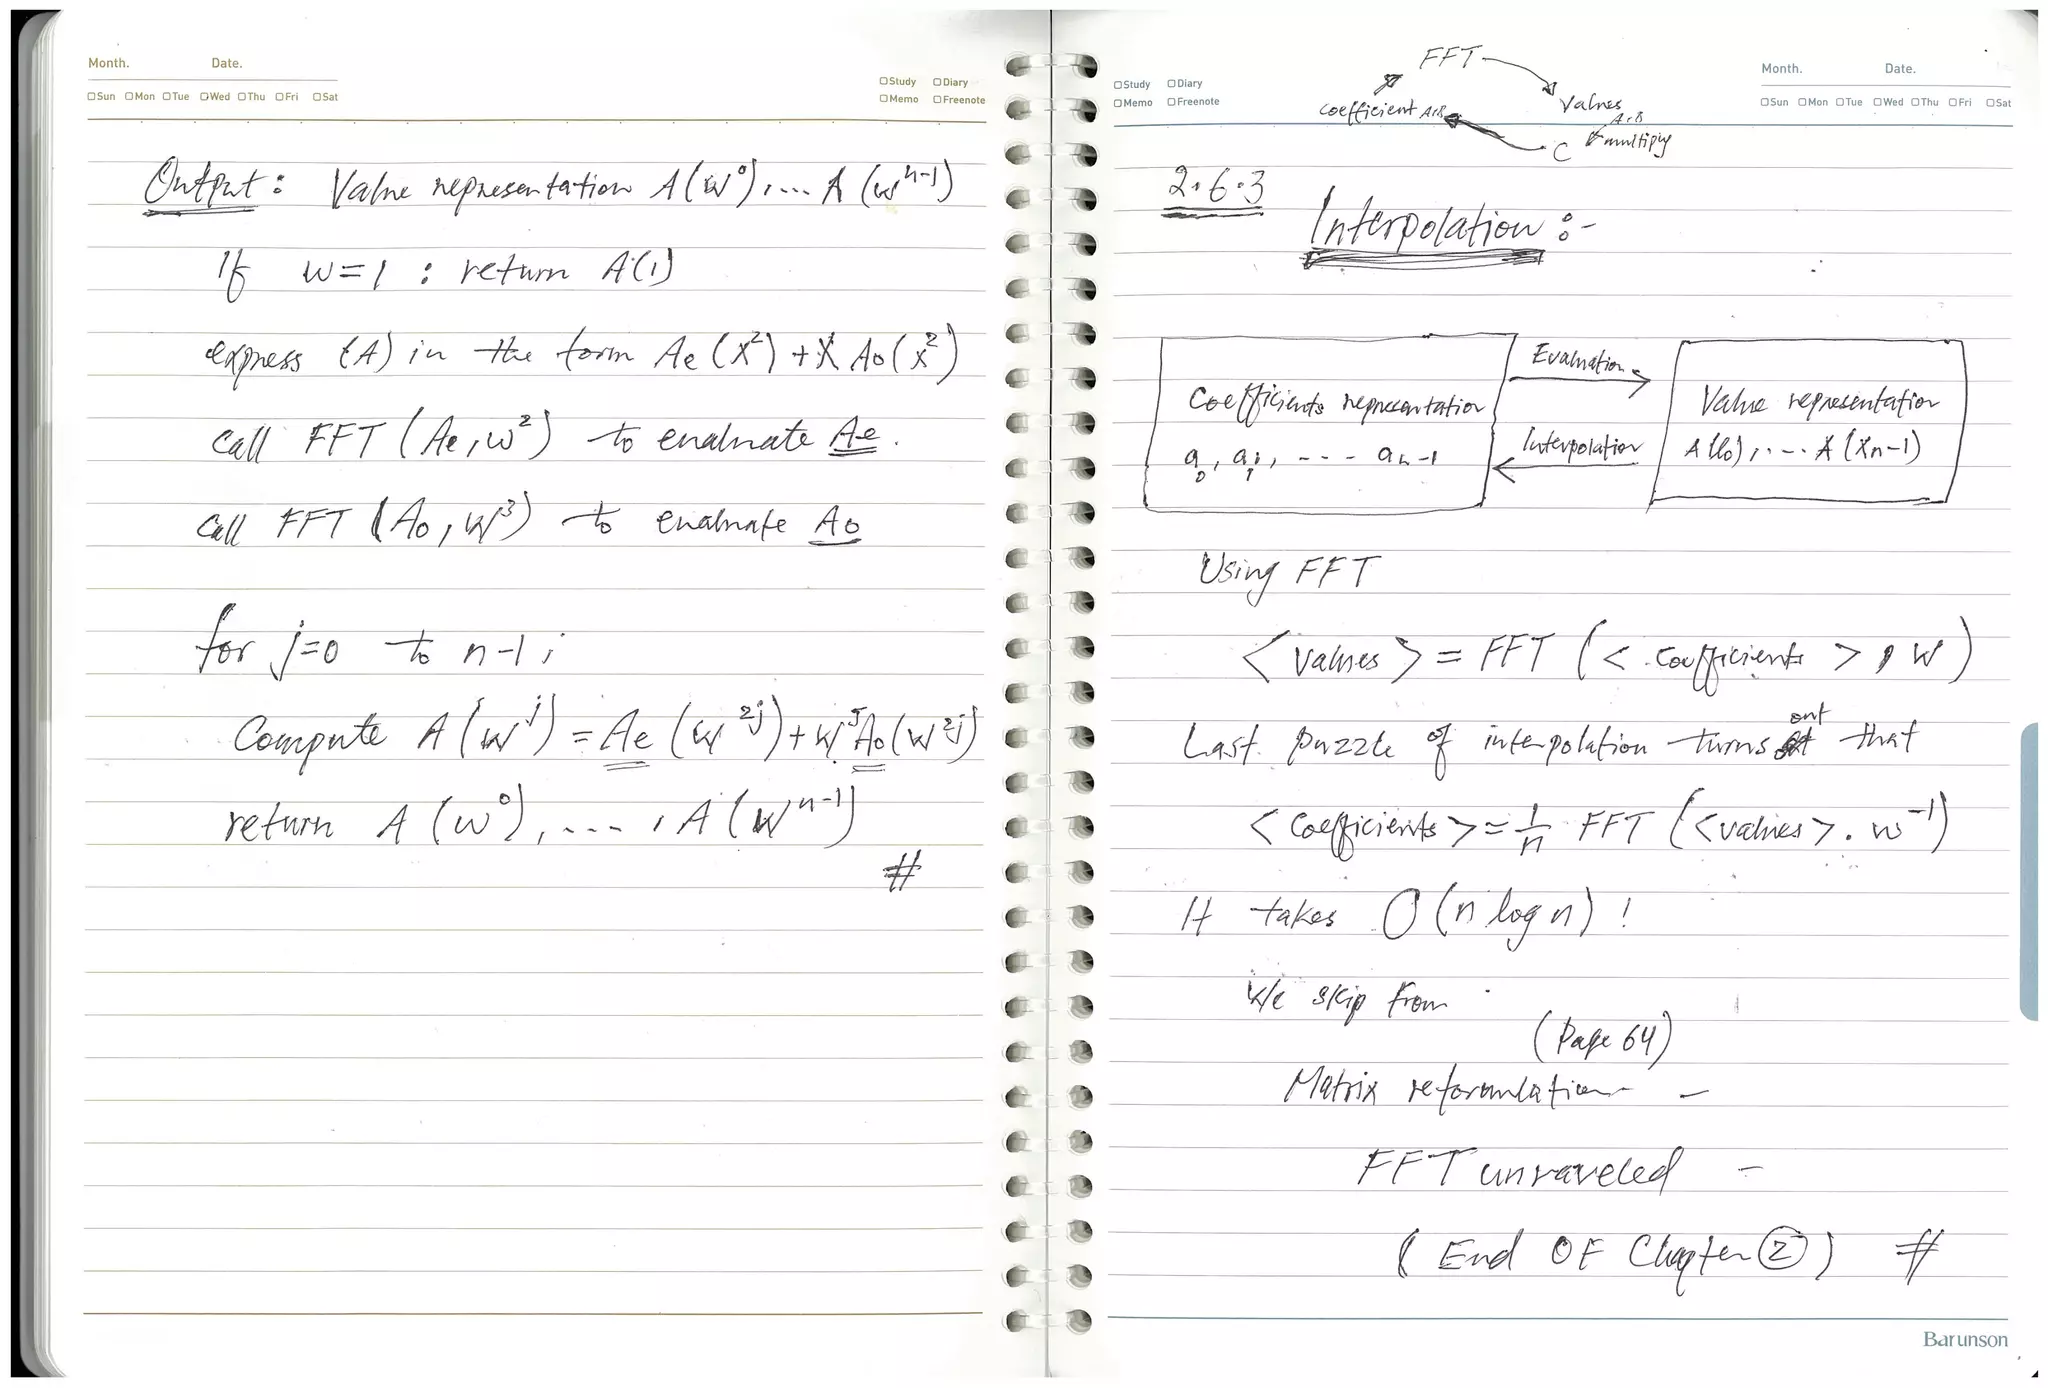 Month. Date.
☐Study ☐Diary
☐Sun ☐Mon ☐Tue ☐Wed ☐Thu ☐Fri ☐Sat
☐Memo ☐Freenote
Output: Value representation A(w⁰), ... A(wⁿ⁻¹)
If w=1 : return A(1)
express (A) in the form Ae(x²) + x Ao(x²)
call FFT (Ae, w²) to evaluate Ae.
call FFT (Ao, w³) to evaluate Ao
for j=0 to n-1 ;
Compute A(w^j) = Ae(w^2j) + w^j Ao(w^2j)
return A(w⁰), ... , A(wⁿ⁻¹)
#
FFT
☐Study ☐Diary
☐Memo ☐Freenote
Month. Date.
☐Sun ☐Mon ☐Tue ☐Wed ☐Thu ☐Fri ☐Sat
coefficient A,B
Values
A,B
multiply
C
2.6.3
Interpolation :-
Evaluation
Coefficients representation
Value representation
Interpolation
a₀, a₁, --- aₙ₋₁
A(x₀), ... A(xn-1)
Using FFT
<values> = FFT (<coefficients>, w)
Last puzzle of interpolation turns out that
<coefficients> = 1/n FFT (<values>. w⁻¹)
It takes O(n log n) !
We skip from
(Page 64)
Matrix reformulation -
FFT unraveled -
(End OF Chapter ②) #
Barunson